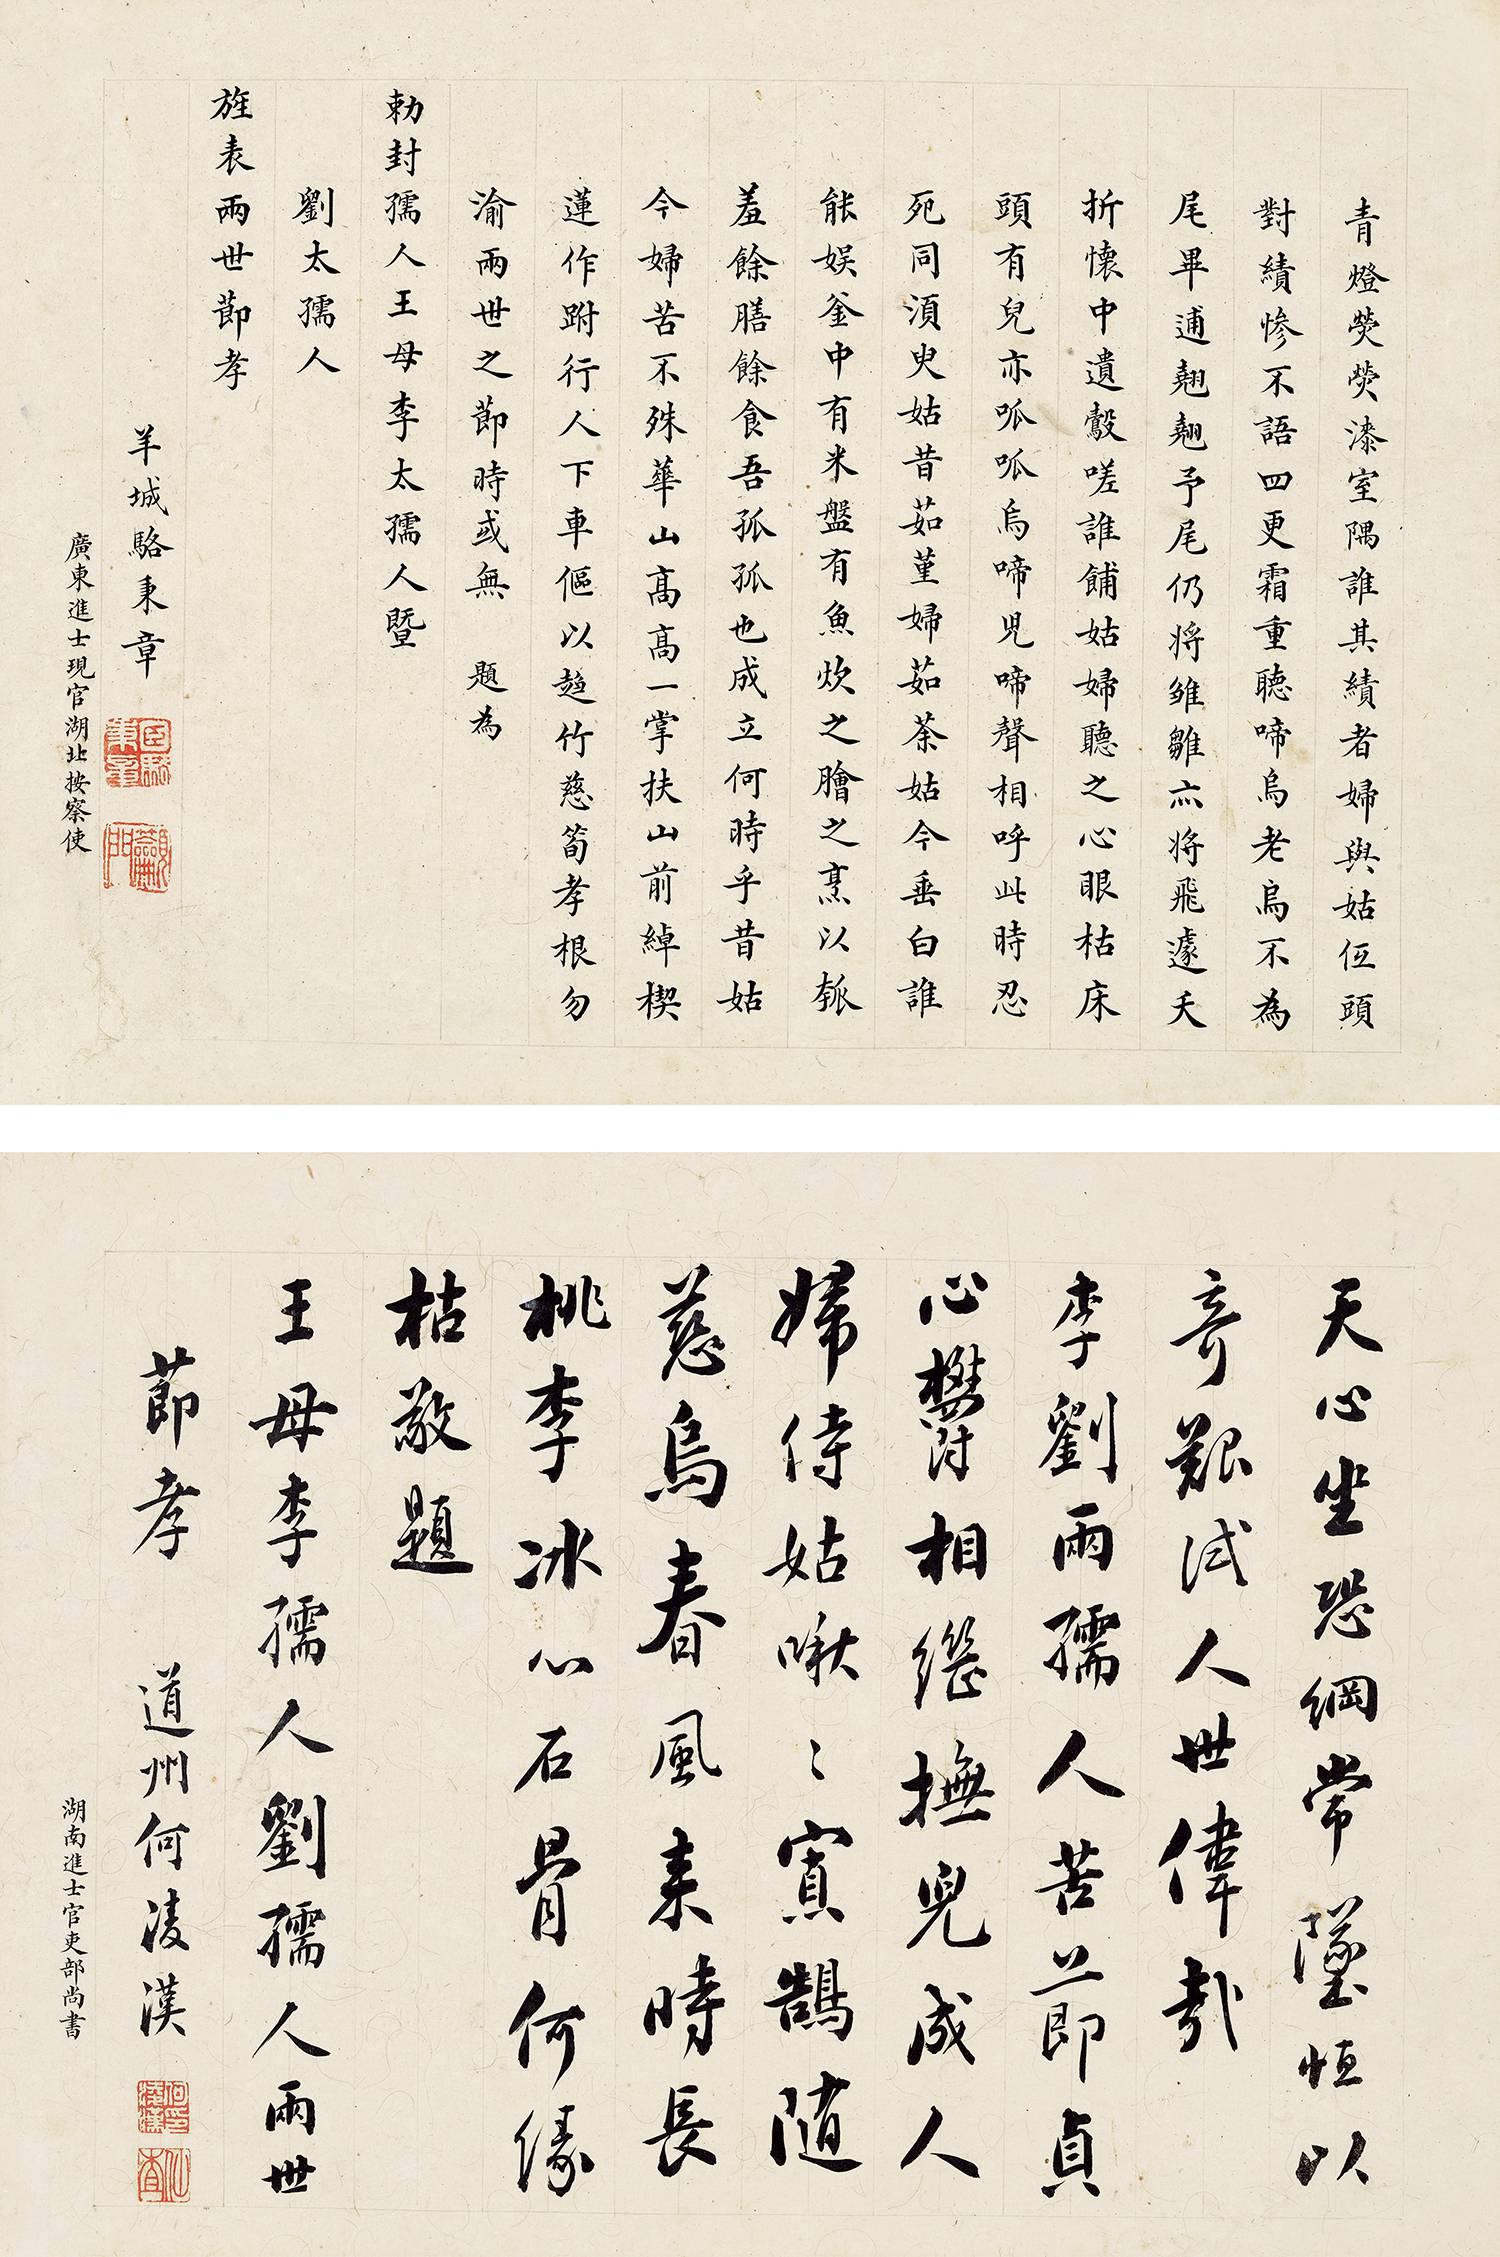 青燈熒熒漆室隅誰其績者婦與姑伍頭
對績慘不語四更霜重聽啼烏老烏不為
尾畢逋翹翹予尾仍將雏雛亦將飛遽夭
折懷中遺鷇嗟誰餔姑婦聽之心眼枯床
頭有兒亦呱呱烏啼兒啼聲相呼此時忍
死同須臾姑昔茹堇婦茹荼姑今垂白誰
能娛釜中有米盤有魚炊之膾之烹以瓠
羞餘膳餘食吾孤孤也成立何時乎昔姑
今婦苦不殊華山高高一掌扶山前綽楔
蓮作跗行人下車傴以趨竹慈筍孝根勿
渝兩世之節時或無 題為
勅封孺人王母李太孺人暨
劉太孺人
旌表兩世節孝
羊城駱秉章
廣東進士現官湖北按察使
天心坐恐綱常墜恒以
奇艱試人世偉哉
李劉兩孺人苦節貞
心欝相繼撫兒成人
婦侍姑啾〻寡鵠隨
慈烏春風來時長
桃李冰心石骨何緣
枯敬題
王母李孺人劉孺人兩世
節孝 道州何凌漢
湖南進士官吏部尚書